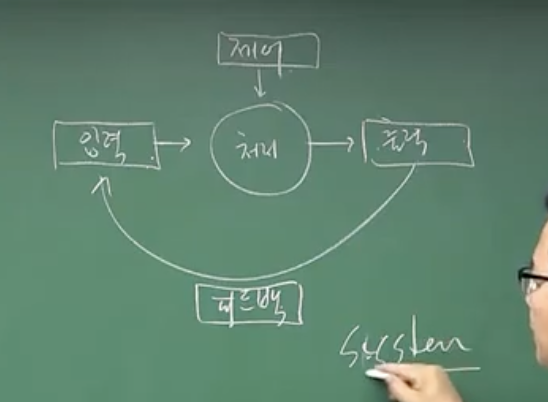 제어
입력
처리
출력
피드백
system